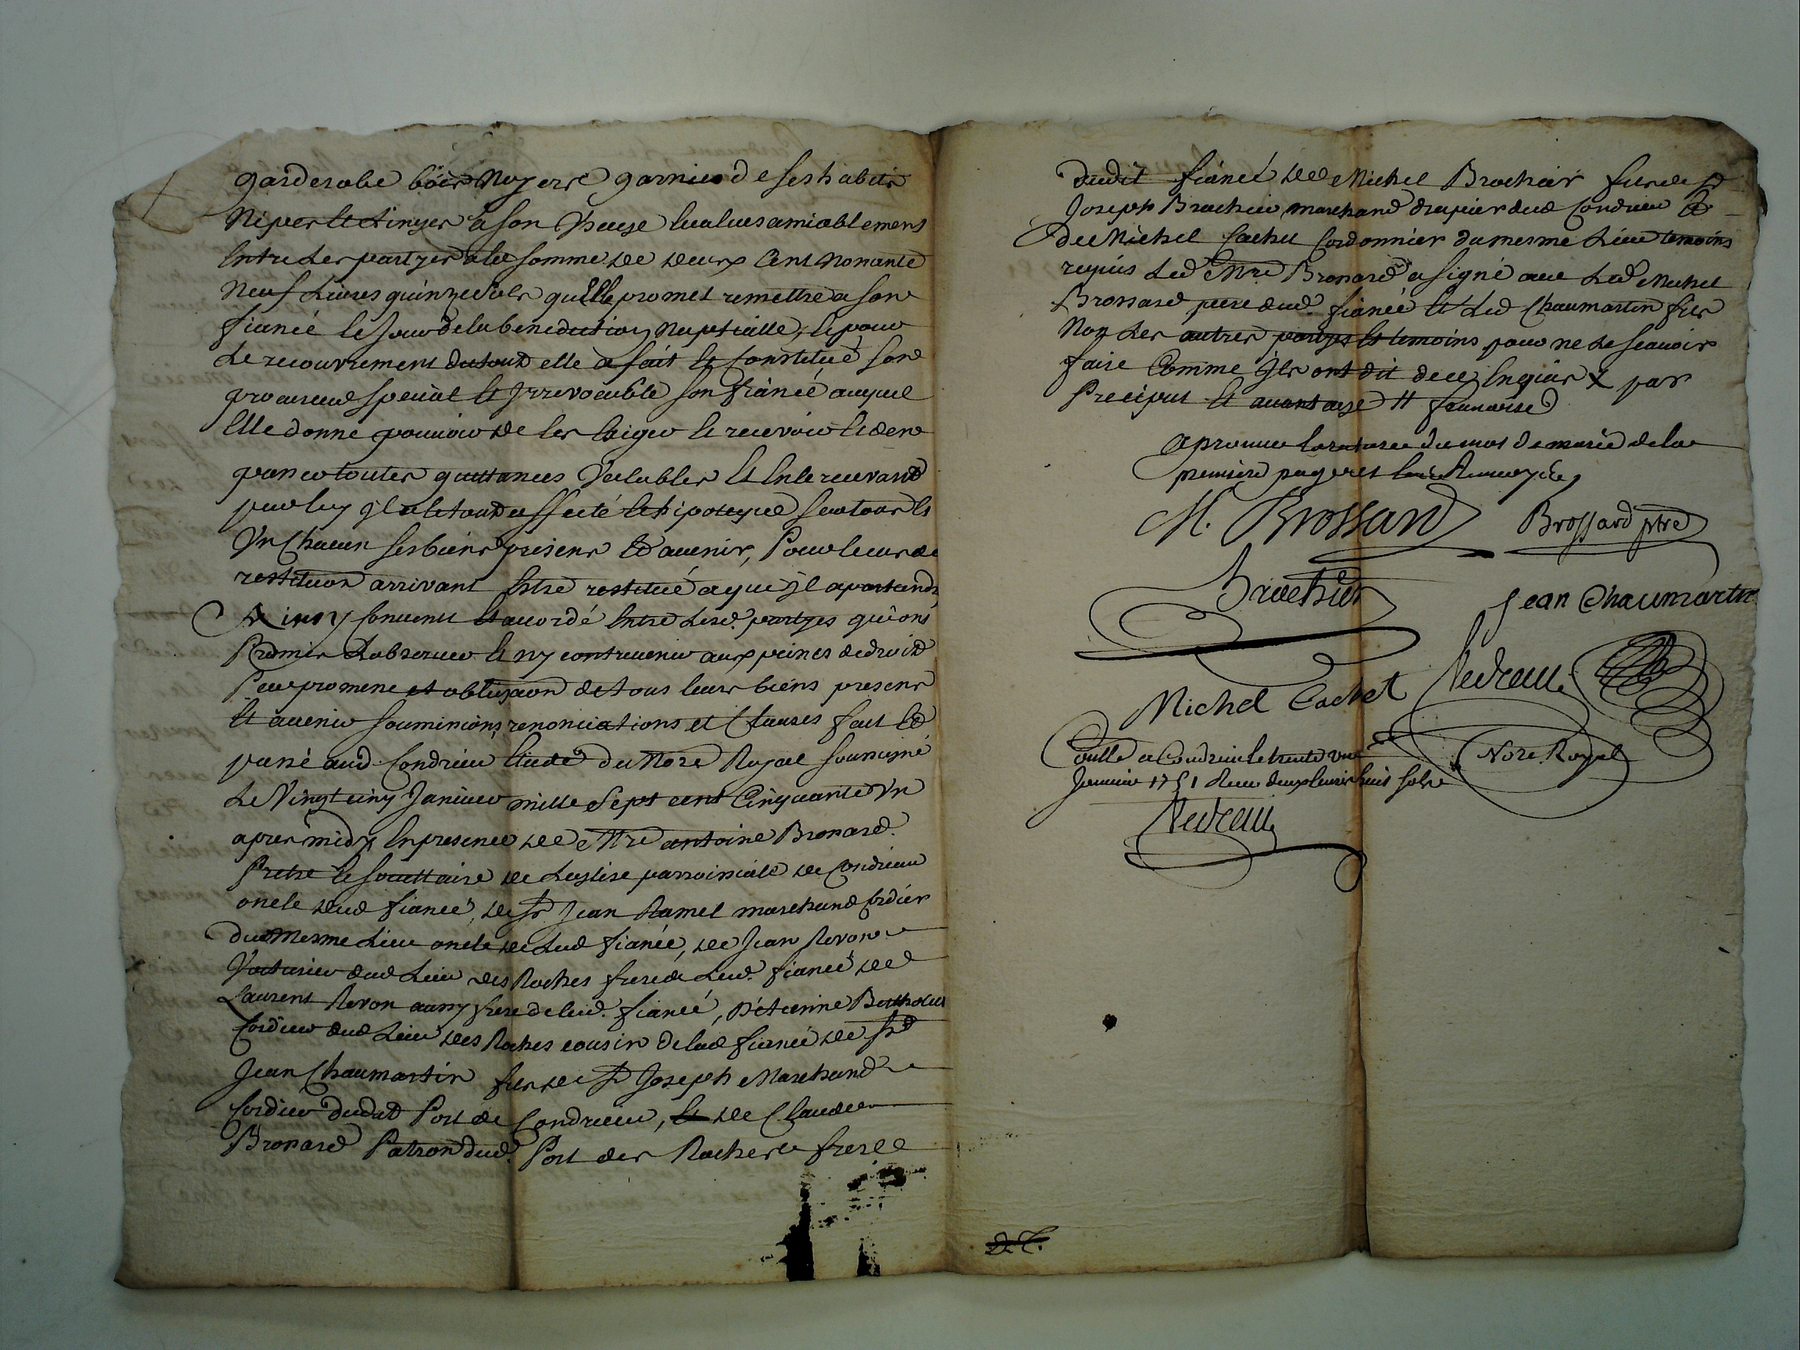 garderobe bois Noyere garnie de ses habits
Nipes et Linges a son Usage Evalues amiablement
Entre Les partyes a la somme de deux Cent Nonante
Neuf Livres quinze sols qu'Elle promet remettre a son
fiancé le Jour de la benediction Nuptialle, et pour
Le recouvrement du tout elle a fait et Constitué son
procureur special et Irrevocable son fiancé auquel
Elle donne pouvoir de les Exiger et recevoir et den
passer toutes quittances Valables Et En le recevant
par luy Il a le tout affecté et hipotequé sur tous Et
Un Chacun ses biens presens Et avenir, Pour le cas de
restituon arrivant Estre restitué a qui Il apartiendra
Ainsy Convenu et accordé Entre Lesd. partyes qui ont
Promis Lobserver et ny contrevenir aux peines de droit
Par promesse et obligaon de tous leurs biens presens
Et avenir soumissions, renonciations et Clauses fait Et
passé aud Condrieu Etude du Nore Royal soussigné
Le Vingt cinq Janvier mille Sept cent Cinquante Un
apres midy En presence de Mre antoine Brossard
Pretre et societtaire de Leglise parroissialle de Condrieu
oncle dud fiancé, de Sr Jean Ramel marchand Cordier
dud Mesme Lieu oncle de Lad fiancée, de Jean Revon
Voiturier dud Lieu des Roches frere de Lad. fiancée de
Laurent Revon aussy frere de lad. fiancée, D'étienne Bertholet
Cordier dud Lieu des Roches cousin de lad fiancée de Sr
Jean Chaumartin fils de Sr Joseph Marchand
Cordier dudit Port de Condrieu, et de Claude
Brossard Patron dud. Port des Roches frere
dudit fiancé de Michel Brochier fils de Sr
Joseph Brochier marchand drapier dud Condrieu Et
De Michel Cachet Cordonnier du mesme Lieu temoins
requis Led Mre Brossard a signé avec Led Michel
Brossard pere dud. fiancé Et Led Chaumartin fils
Non Les autres partyes et temoins pour ne le scavoir
faire Comme Ils ont dit de ce Enquis X par
Preciput Et avantage # francoise
aprouvé la rature du mot de marie de la
premiere page et les Renvoyes
M. Brossard Brossard ptre
Brochier Jean Chaumartin
Michel Cachet
Nore Royal
Conllé a Condrieu le trente un
Janvier 1751 Recu deux livres huit sols